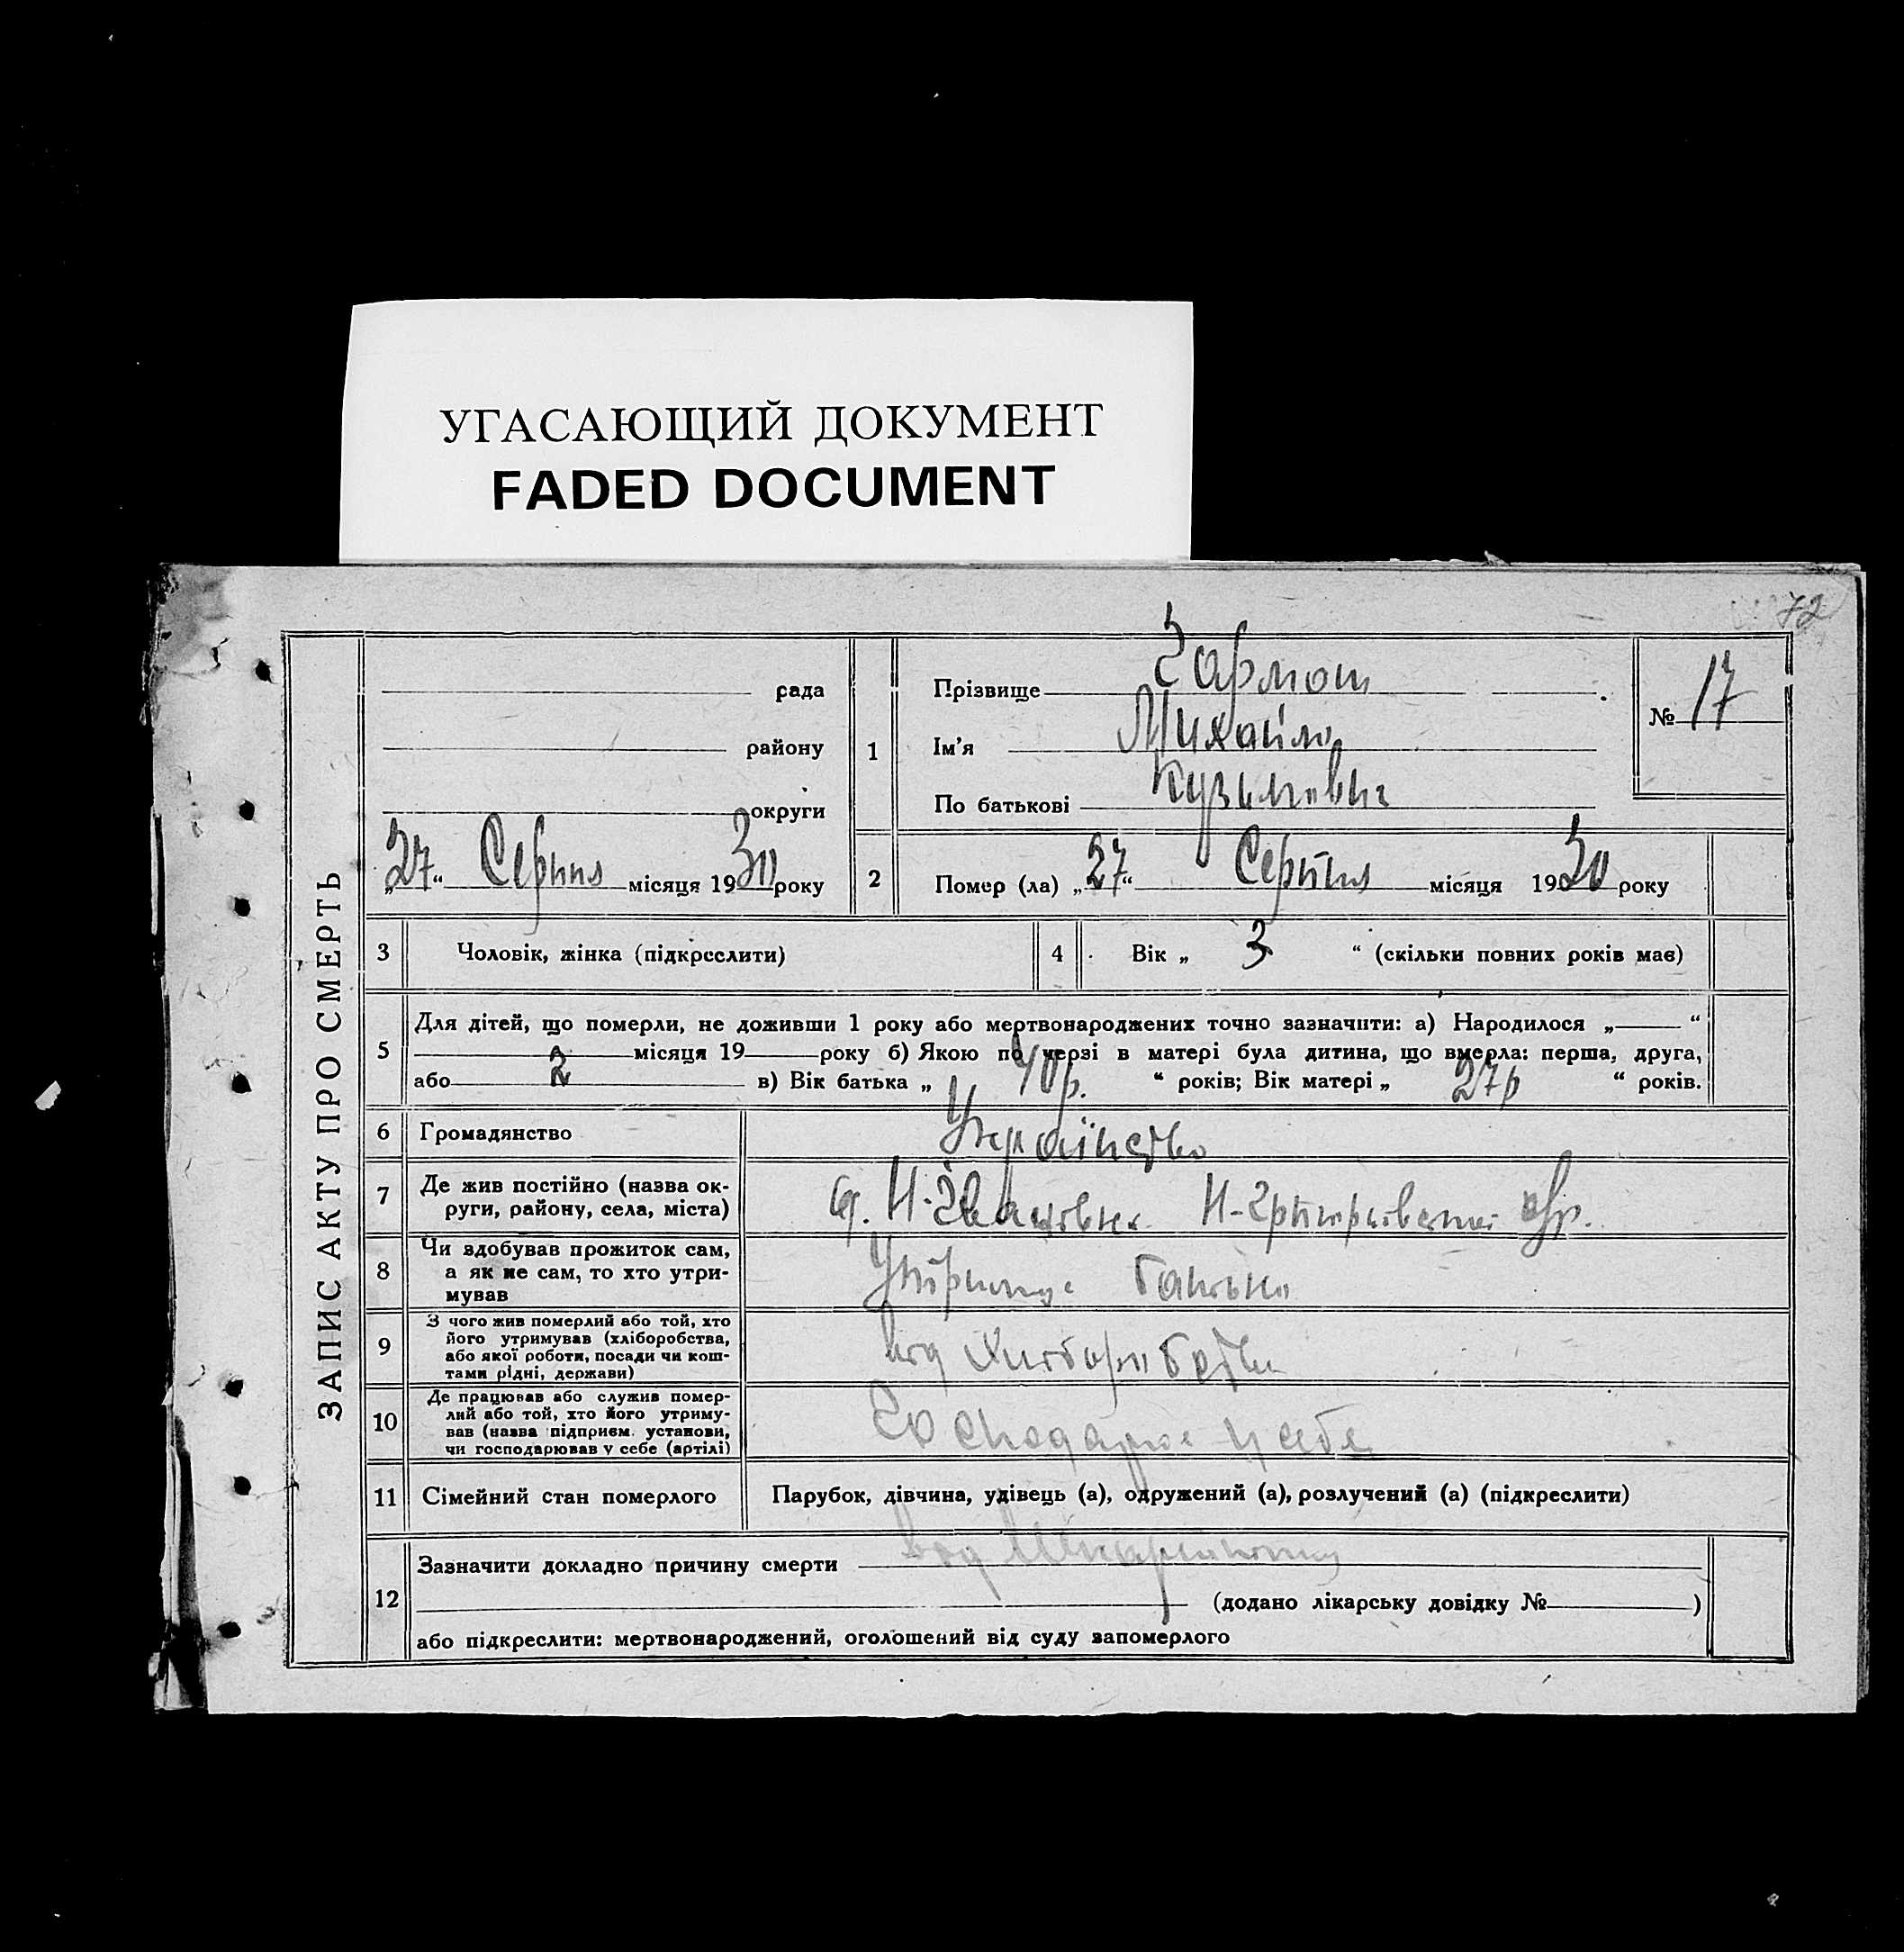 УГАСАЮЩИЙ ДОКУМЕНТ
FADED DOCUMENT
72
ЗАПИС АКТУ ПРО СМЕРТЬ
рада
району
округи
„27“ Серпня місяця 1930 року
1
Прізвище
Ім'я Михайло
По батькові Кузьмович
№ 17
2 Помер (ла) „27“ Серпня місяця 1930 року
3 Чоловік, жінка (підкреслити)
4 Вік „ 3 “ (скільки повних років має)
5 Для дітей, що померли, не доживши 1 року або мертвонароджених точно зазначити: а) Народилося „ “
місяця 19 року б) Якою по черзі в матері була дитина, що вмерла: перша, друга,
або 2 в) Вік батька „ 40р. “ років; Вік матері „ 27р “ років.
6 Громадянство Українство
7 Де жив постійно (назва ок-
руги, району, села, міста)
с. Н-
8 Чи здобував прожиток сам,
а як не сам, то хто утри-
мував
Утримує батько
9 З чого жив померлий або той, хто
його утримував (хліборобства,
або якої роботи, посади чи кош-
тами рідні, держави)
від хліборобства
10 Де працював або служив помер-
лий або той, хто його утриму-
вав (назва підприєм. установи,
чи господарював у себе (артілі)
Господарює у себе
11 Сімейний стан померлого Парубок, дівчина, удівець (а), одружений (а), розлучений (а) (підкреслити)
12 Зазначити докладно причину смерти від
(додано лікарську довідку № )
або підкреслити: мертвонароджений, оголошений від суду запомерлого